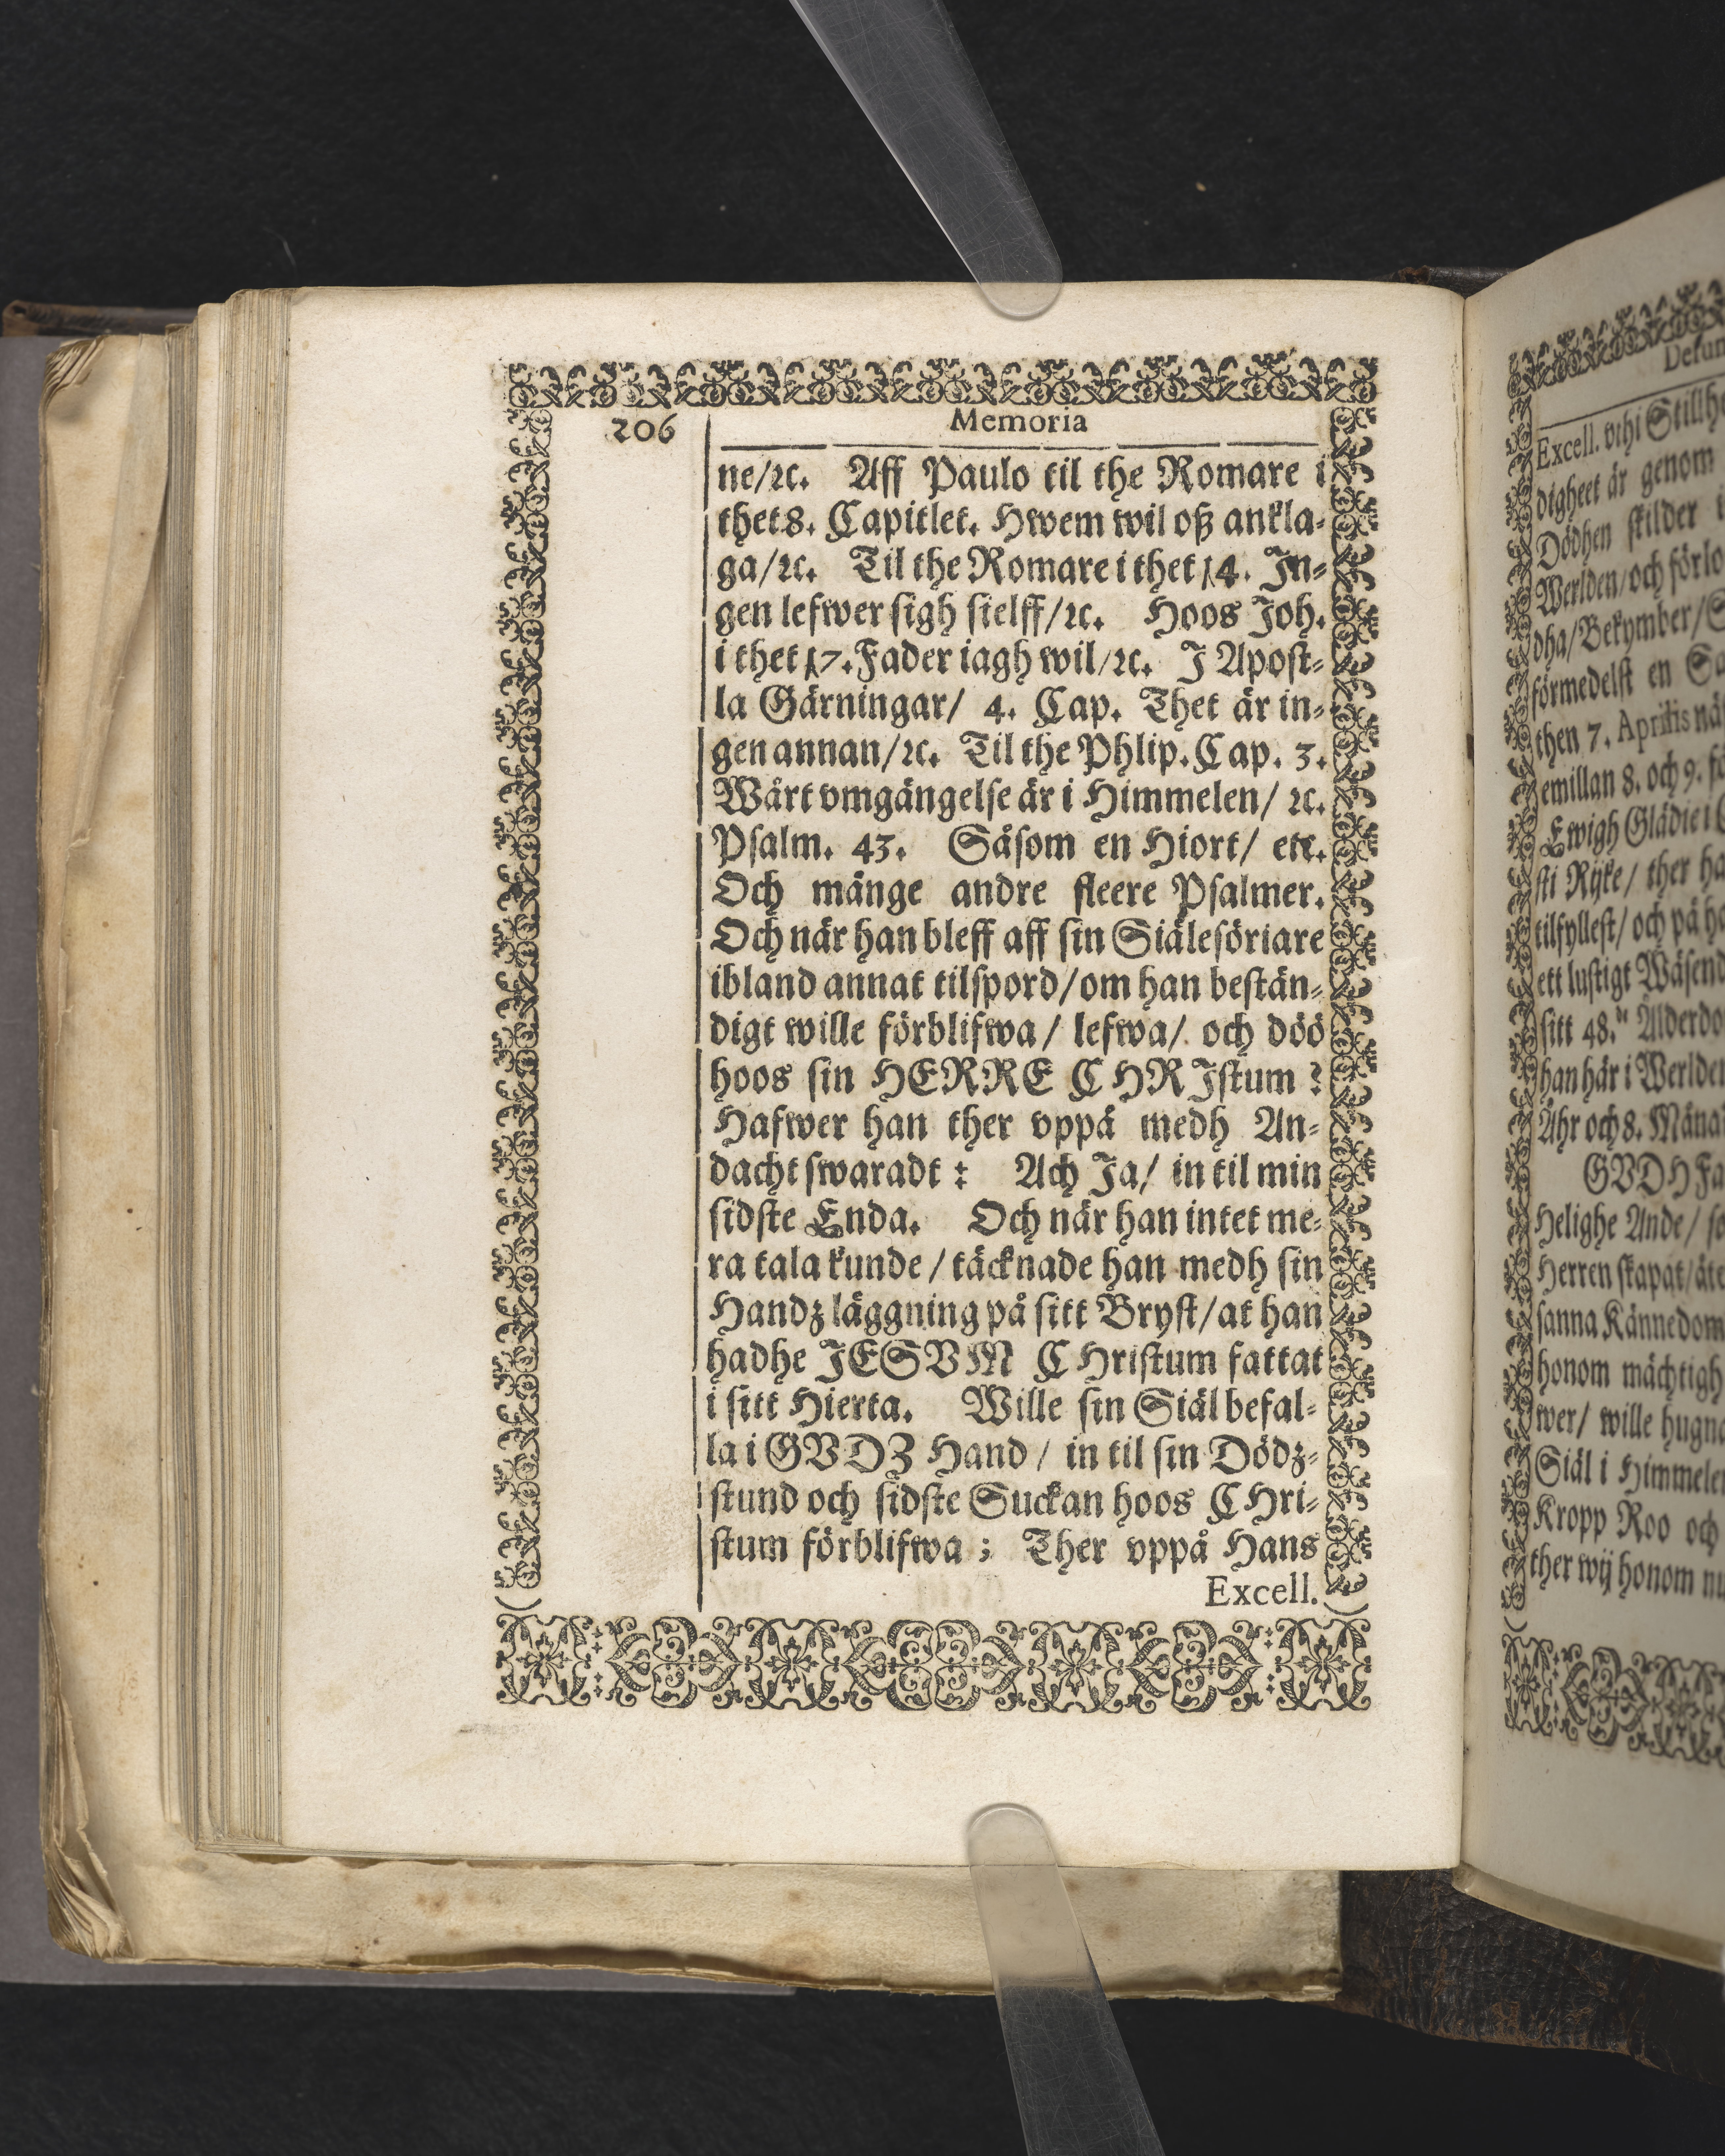 206
Memoria
ne/ꝛc. Aff Paulo til the Romare i
thet 8. Capitlet. Hwem wil oß ankla-
ga/ꝛc. Til the Romare i thet 14. In-
gen lefwer sigh sielff/ꝛc. Hoos Joh.
i thet 17. Fader iagh wil/ꝛc. J Apost-
la Gärningar/ 4. Cap. Thet är in-
gen annan/ꝛc. Til the Phlip. Cap. 3.
Wårt vmgängelse är i Himmelen/ ꝛc.
Psalm. 43. Såsom en Hiort/ etc.
Och månge andre fleere Psalmer.
Och när han bleff aff sin Siälesöriare
ibland annat tilspord/om han bestän-
digt wille förblifwa/ lefwa/ och döö
hoos sin HERRE CHRJstum?
Hafwer han ther vppå medh An-
dacht swaradt: Ach Ja/ in til min
sidste Enda. Och när han intet me-
ra tala kunde/täcknade han medh sin
Handz läggning på sitt Bryst/at han
hadhe JESVM CHristum fattat
i sitt Hierta. Wille sin Siäl befal-
la i GVDZ Hand/ in til sin Dödz-
stund och sidste Suckan hoos CHri-
stum förblifwa; Ther vppå Hans
Excell.
Excell. vthi
digheet är genom
Dödhen skilder i
Werlden/och förlo
dha/Bekymber/S
förmedelst en Sa
then 7. Aprilis nä
emillan 8. och 9. fö
Ewigh Glädie i
sti Rijke/ ther ha
tilfyllest/och på hö
ett lustigt Wäsend
sitt 48. Ålderdo
han här i Werlden
Åhr och 8. Måna
GVDH Fa
Helighe Ande/ so
Herren skapat/åte
sanna Kännedom
honom mächtigh
wer/ wille hugna
Siäl i Himmelen
Kropp Roo och
ther wij honom nu